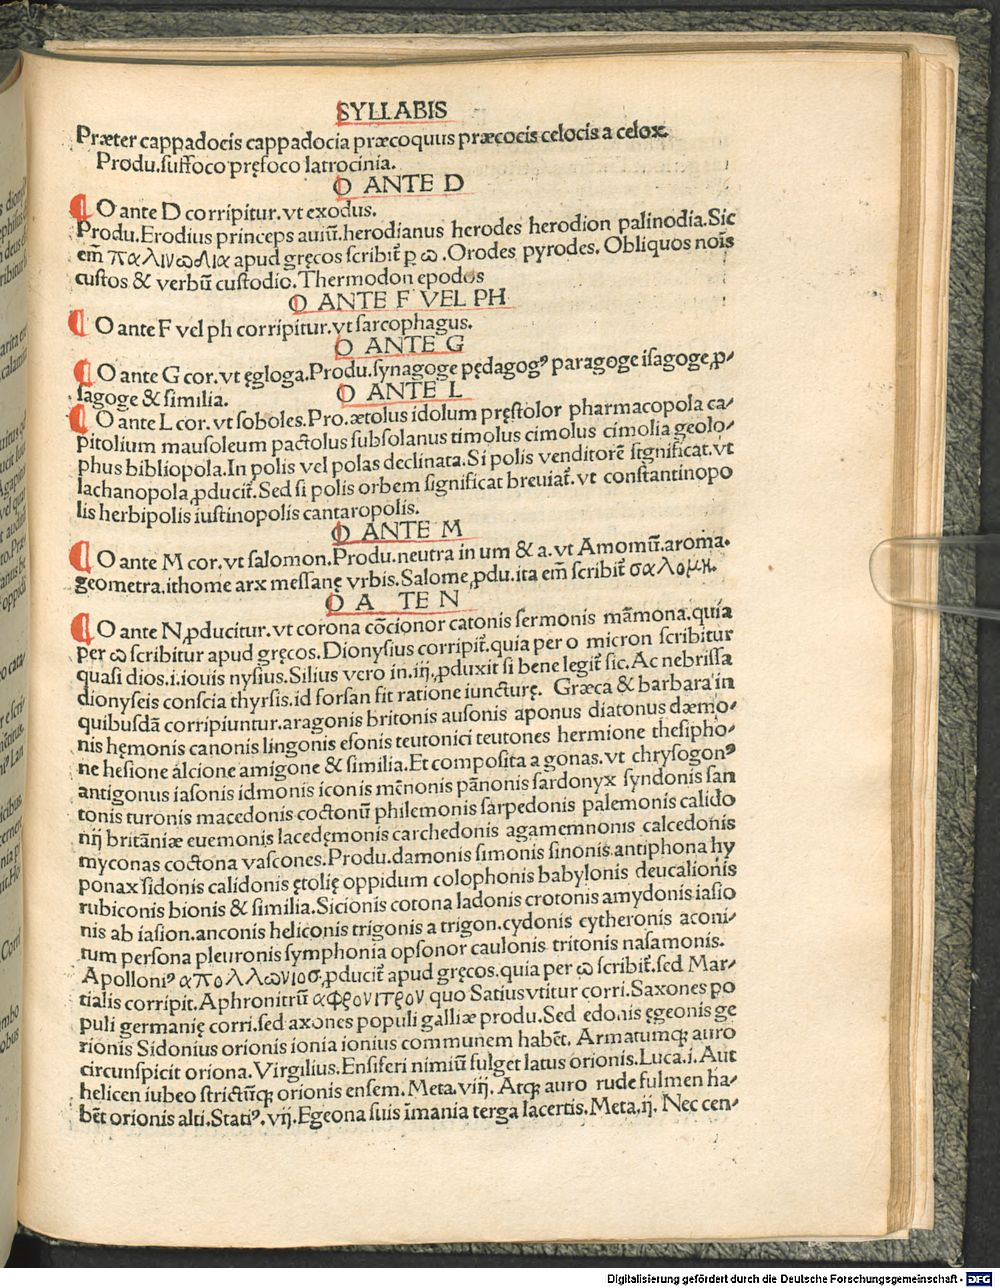 SYLLABIS
Præter cappadocis cappadocia præcoquus præcocis celocis a celox.
Produ.suffoco pręfoco latrocinia.
O ANTE D
O ante D corripitur.vt exodus.
Produ.Erodius princeps auiū.herodianus herodes herodion palinodia.Sic
em̄ παλινωδια apud gręcos scribit̄ ꝑ ω .Orodes pyrodes. Obliquos noīs
custos & verbū custodio.Thermodon epodos
O ANTE F VEL PH
O ante F vel ph corripitur.vt sarcophagus.
O ANTE G
O ante G cor.vt ęgloga.Produ.synagoge pędagogꝰ paragoge isagoge,ꝓ⸗
sagoge & similia.
O ANTE L
O ante L cor.vt soboles.Pro.ætolus idolum pręstolor pharmacopola ca⸗
pitolium mausoleum pactolus subsolanus timolus cimolus cimolia geolo⸗
phus bibliopola.In polis vel polas declinata.Si polis venditorē significat.vt
lachanopola ꝓducit̄. Sed si polis orbem significat breuiat̄. vt constantinopo
lis herbipolis iustinopolis cantaropolis.
O ANTE M
O ante M cor.vt salomon.Produ.neutra in um & a.vt Amomū.aroma.
geometra.ithome arx messanę vrbis.Salome ꝓdu.ita em̄ scribit̄ σαλομη.
O A TE N
O ante N ꝓducitur.vt corona cōcionor catonis sermonis mām̄ona.quia
per ω scribitur apud gręcos.Dionysius corripit̄.quia per o micron scribitur
quasi dios.i.iouis nysius.Silius vero in.iij.ꝓduxit si bene legit̄ sic.Ac nebrissa
dionyseis conscia thyrsis.id forsan fit ratione iuncturę. Græca & barbara in
quibusdā corripiuntur.aragonis britonis ausonis aponus diatonus dæmo⸗
nis hęmonis canonis lingonis esonis teutonici teutones hermione thesipho⸗
ne hesione alcione amigone & similia.Et composita a gonas.vt chrysogonꝰ
antigonus iasonis idmonis iconis mēnonis pānonis sardonyx syndonis san
tonis turonis macedonis coctonū philemonis sarpedonis palemonis calido
nij britāniæ euemonis lacedęmonis carchedonis agamemnonis calcedonis
myconas coctona vascones.Produ.damonis simonis sinonis.antiphona hy
ponax sidonis calidonis ętolię oppidum colophonis babylonis deucalionis
rubiconis bionis & similia.Sicionis cotona ladonis crotonis amydonis iasio
nis ab iasion.anconis heliconis trigonis a trigon.cydonis cytheronis aconi⸗
tum persona pleuronis symphonia opsonor caulonis tritonis nasamonis.
Apolloniꝰ απολλωνιοσ.ꝓducit̄ apud gręcos.quia per ω scribit̄.sed Mar⸗
tialis corripit.Aphronitrū αφρονιτρον quo Satiusvtitur corri.Saxones po
puli germanię corri.sed axones populi galliæ produ.Sed edonis ęgeonis ge
rionis Sidonius orionis ionia ionius communem habēt. Armatumqꝫ auro
circunspicit oriona.Virgilius.Ensiferi nimiū fulget latus orionis.Luca.i.Aut
helicen iubeo strictūqꝫ orionis ensem.Meta.viij. Atqꝫ auro rude fulmen ha⸗
bēt orionis alti.Statiꝰ.vij.Egeona suis īmania terga lacertis.Meta.ij. Nec cen⸗
Digitalisierung gefördert durch die Deutsche Forschungsgemeinschaft - DFG